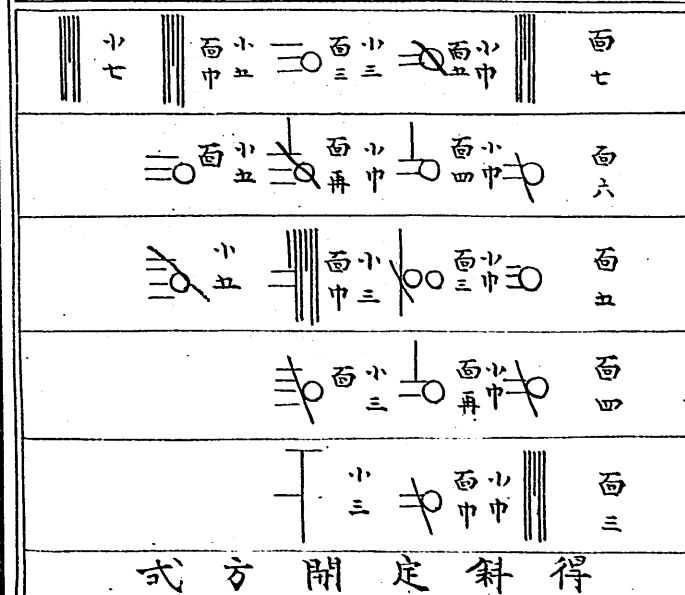 面七 小巾面五 小三面三 小五面巾 小七
面六 小巾面四 小巾面再 小五面
面五 小巾面三 小三面巾 小五
面四 小巾面再 小三面
面三 小巾面巾 小三
得斜定開方式